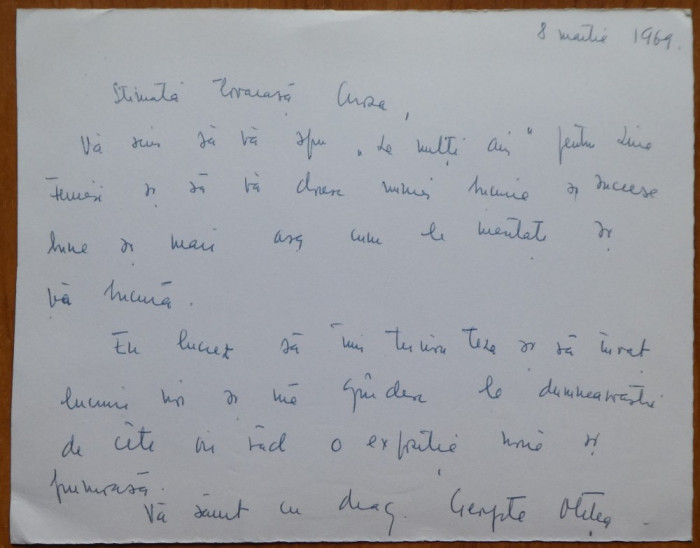 8 martie 1969.
Stimată Tovarașă Cuza,
Vă scriu să vă spun „La mulți ani" pentru ziua
femeii și să vă doresc numai bucurie și succese
bune și mari așa cum le meritați și
vă bucură.
Eu lucrez să îmi termin teza și să învăț
lucruri noi și mă gîndesc la dumneavoastră
de cîte ori văd o expoziție nouă și
frumoasă.
Vă sărut cu drag. Georgeta Oltea